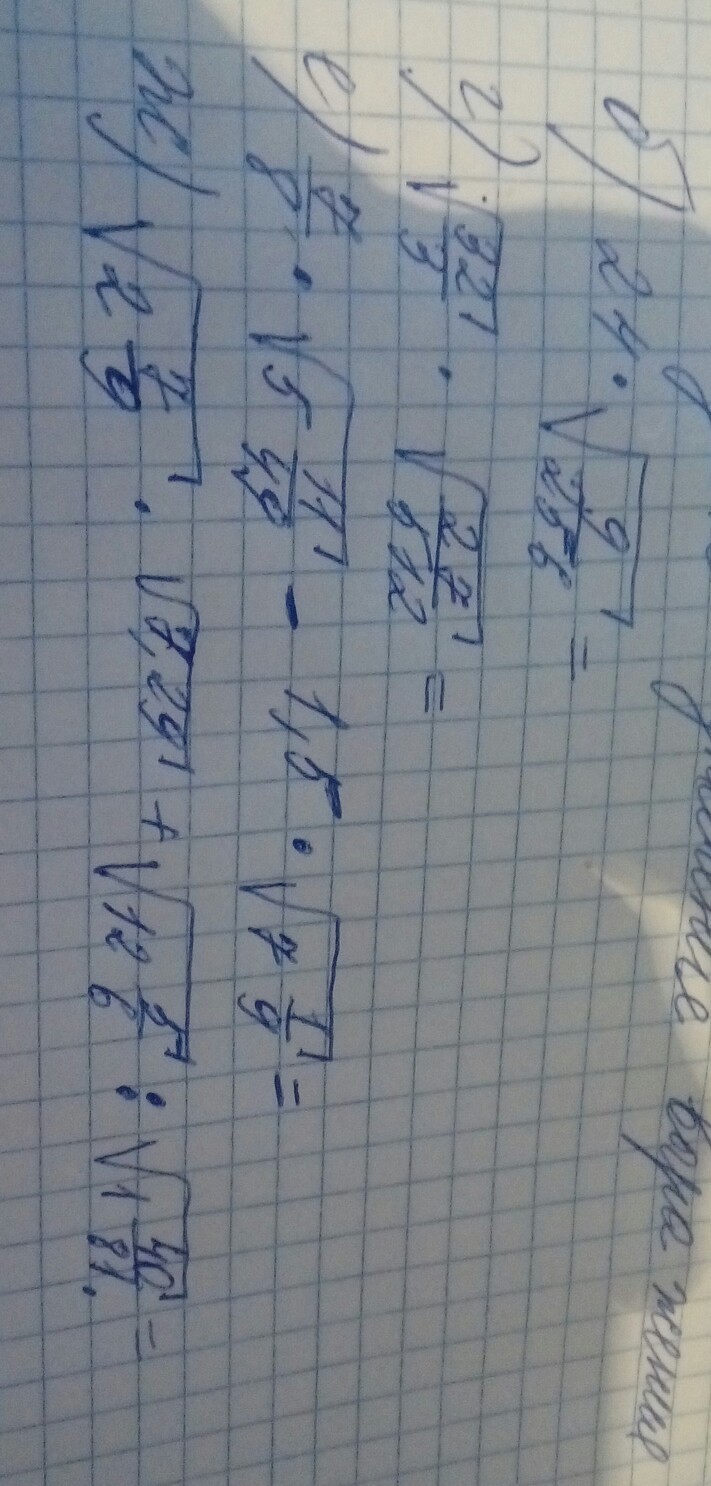 значение выражения
б) 24 · √(9/256) =
г) √(32/3) · √(27/512) =
е) 7/8 · √(5 11/49) - 1,5 · √(7 1/9) =
ж) √(2 7/9) · √7,29 + √(12 5/6) : √(1 40/81) =